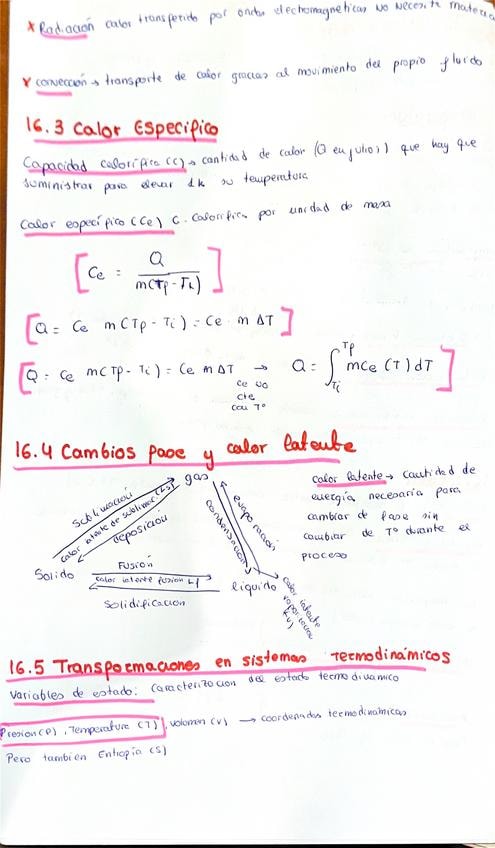 x Radiación calor transferido por ondas electromagnéticas no necesita materia
x convección → transporte de calor gracias al movimiento del propio fluido
16.3 Calor Específico
Capacidad calorífica (C) → cantidad de calor (Q en julios) que hay que
suministrar para elevar 1k su temperatura
Calor específico (Ce) C. Calorífica por unidad de masa
[Ce = Q / m(Tf - Ti)]
[Q = Ce m (Tf - Ti) = Ce · m ΔT]
[Q = Ce m (Tf - Ti) = Ce m ΔT → Q = ∫Ti Tf m Ce (T) dT]
Ce no
cte
con Tº
16.4 Cambios fase y calor latente
gas
sublimación
calor latente de sublimac (Ls)
deposición
evaporación
condensación
calor latente
vaporización
(Lv)
Solido
Fusión
calor latente fusión Lf
Solidificación
liquido
calor latente → cantidad de
energía necesaria para
cambiar de fase sin
cambiar de Tº durante el
proceso
16.5 Transformaciones en sistemas Termodinámicos
Variables de estado: caracterización del estado termodinamico
Presion (P), Temperatura (T), volumen (V) → coordenadas termodinámicas
Pero tambien Entropía (S)